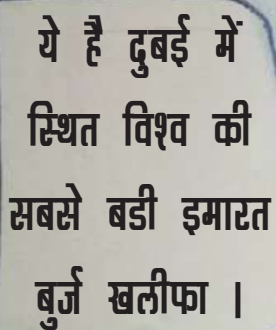 ये है दुबई में
स्थित विश्व की
सबसे बडी इमारत
बुर्ज खलीफा ।